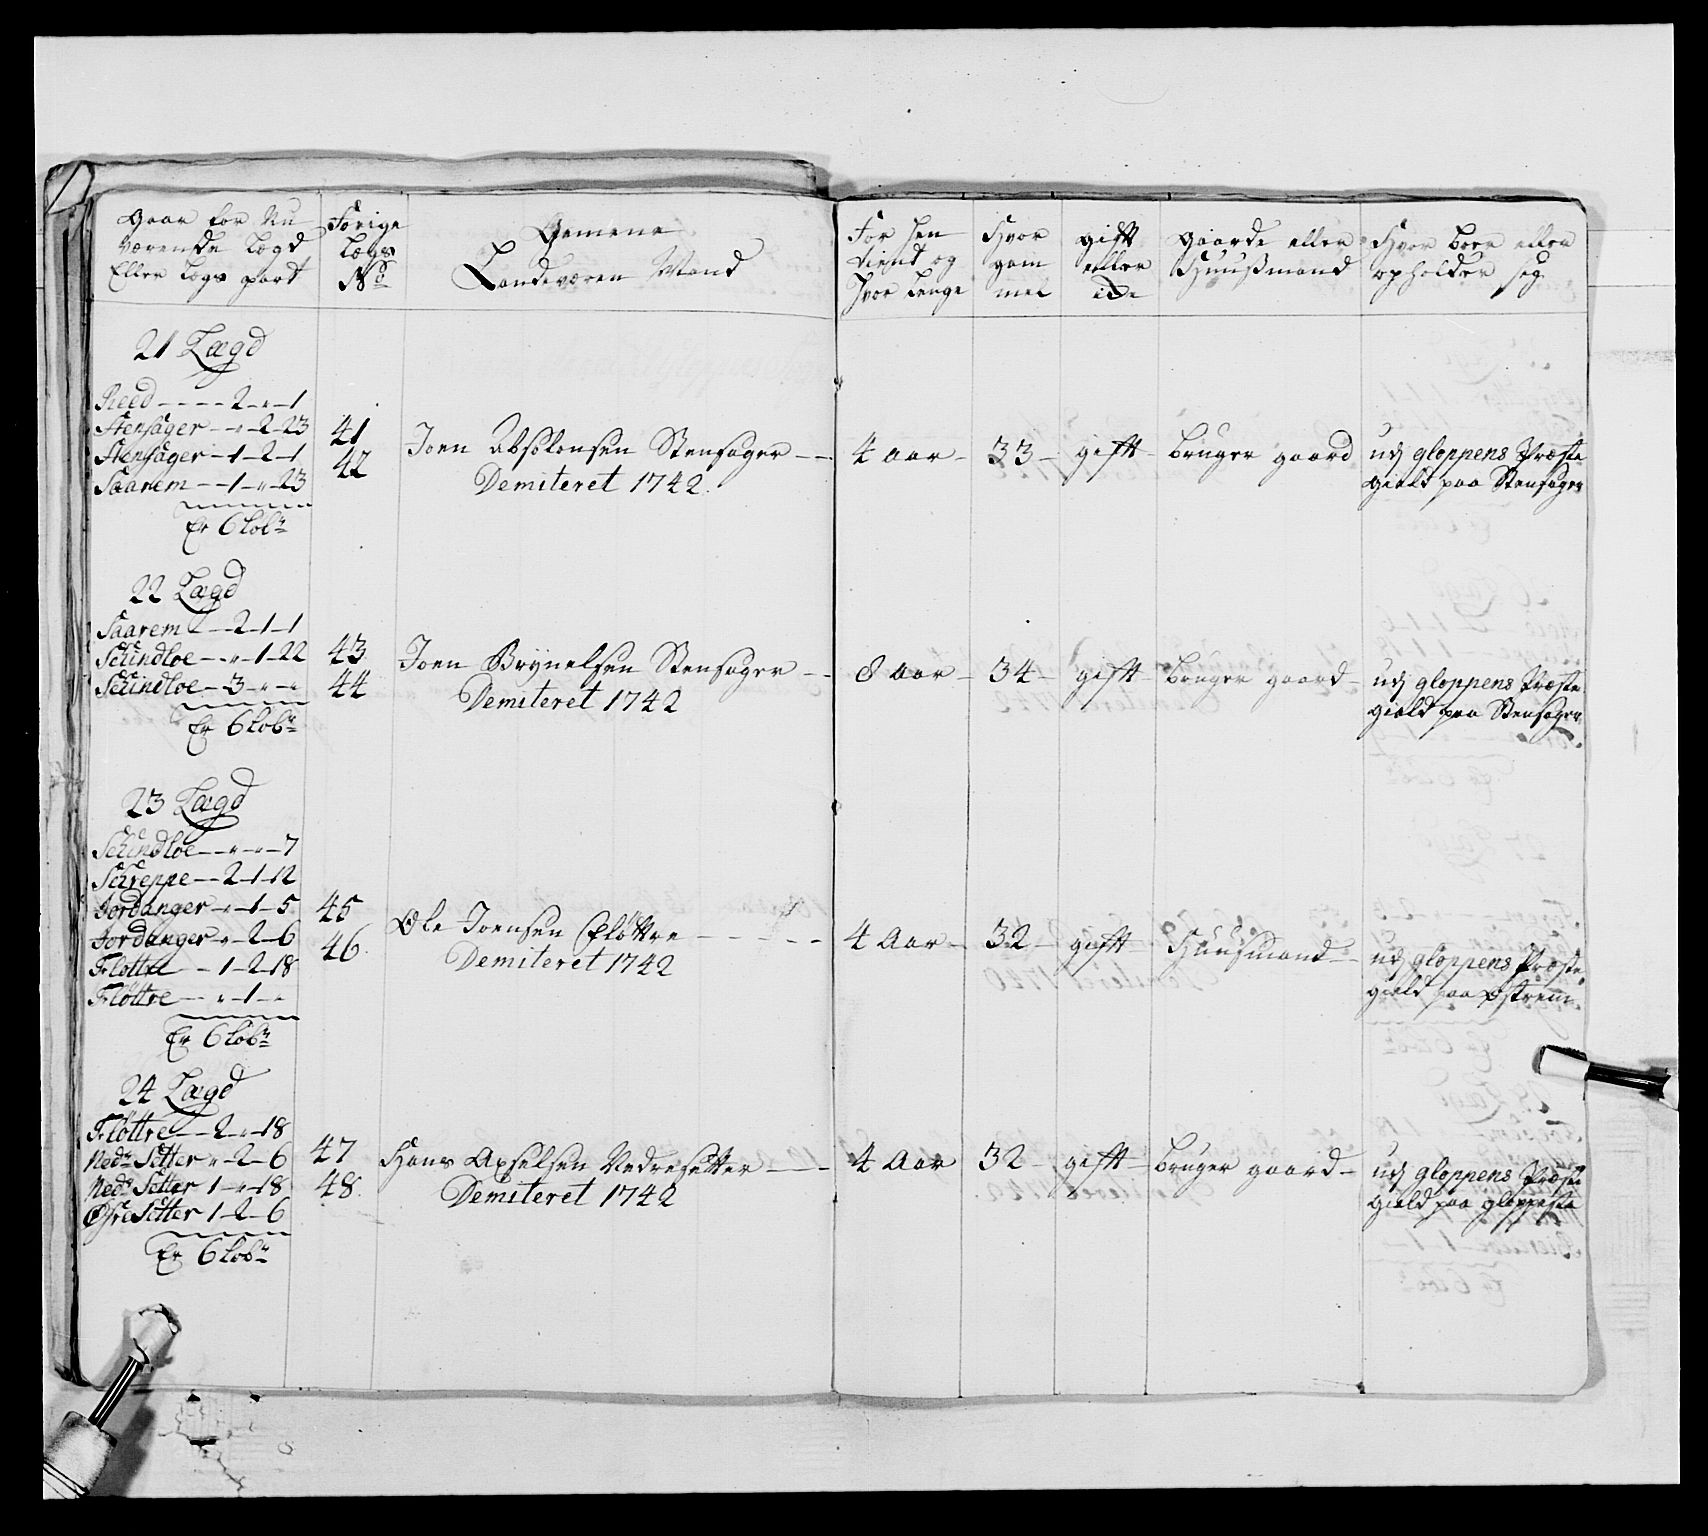 Gaar for Nu
værende Lægd
Eller Lægs part
Forige
Lægs
No
Gemene
Landeværn Mand
For hen
tient og
hvor lenge
Hvor
gam
mel
gift
eller
ide
Gaarde eller
Huusmand
Hvor boer eller
opholder sig
21 Lægd
Reed - - - - 2 - " - 1
Stensager - " - 2 - 23
Stensager - 1 - 2 - 1
Saarem - - 1 - " - 23
Er 6 Løbr
41
42
Joen Absolonsen Stensager - -
Demiteret 1742.
4 Aar - 33 - gift - Bruger gaard
udj gloppens Præste
gield paa Stensager
22 Lægd
Saarem - - 2 - 1 - 1
Schindloe - - " - 1 - 22
Schindloe - 3 - " - "
Er 6 Løbr
43
44
Joen Brynelsen Stensager - -
Demiteret 1742
8 Aar - 34 - gift - Bruger gaard -
udj gloppens Præste
gield paa Stensager
23 Lægd
Schindloe - - " - " - 7
Schreppe - - 2 - 1 - 12
Jordanger - " - 1 - 5
Jordanger - " - 2 - 6
Fløttre - 1 - 2 - 18
Fløttre - - " - 1 - "
Er 6 Løbr
45
46.
Ole Joensen Fløttre - - - - -
Demiteret 1742
4 Aar - 32 - gift - Huusmand -
udj gloppens Præste
gield paa Østrem
24 Lægd
Fløttre - - 2 - " - 18
Nedr Setter " - 2 - 6
Nedr Setter 1 - " - 18
Øfre Setter 1 - 2 - 6
Er 6 Løbr
47
48.
Hans Axselsen Nedresetter - - -
Demiteret 1742
4 Aar 32 - gift - Bruger gaard -
udj gloppens Præste
gield paa gloppestá